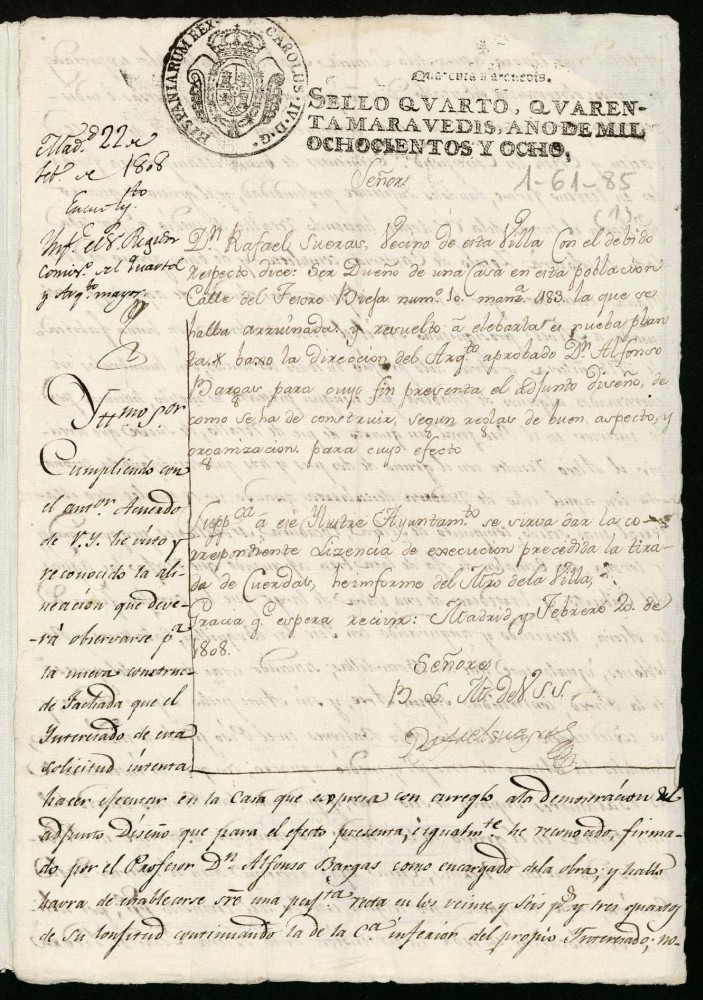 HISPANIARUM REX CAROLUS·IV·D·G·
Quarenta maravedis.
SELLO QVARTO, QVAREN-
TA MARAVEDIS, AÑO DE MIL
OCHOCIENTOS Y OCHO,
1-61-85
(15)
Mad.d 22 de
feb.o de 1808
Ynf.e el S.r Regidor
Comis.o del quartel
y Arq.to mayor.
Señor
D.n Rafael Sueras, Vecino de esta Villa con el debido
respecto, dice: Ser Dueño de una Casa en esta poblacion
Calle del Tesoro Bieja num.o 10. manz.a 183. la que se
halla arruinada y resuelto á elebarla de nueba plan
ta. x baxo la direccion del Arq.to aprobado D.n Alfonso
Bargas para cuyo fin presenta el adjunto diseño, de
como se ha de construir, segun reglas de buen aspecto, y
organizacion. para cuyo efecto
Supp.ca á ese Ylustre Ayuntam.to se sirva dar la co-
respondiente Lizencia de execucion precedida la tira-
da de Cuerdas, he informe del Mro de la Villa,
Gracia q.e espera recivir: Madrid y Febrero 20. de
1808.
Señores
B. L. M. de V.S.S.
Rafael Sueras
Yttmo S.or
Cumpliendo con
el antor. Acuerdo
de V.Y. he visto y
reconocido la ali-
neacion que deve-
-rá observarse p.a
la nueva construc.n
de Fachada que el
Ynteresado de esta
solicitud intenta
hacer ejecutar en la Casa que expresa con arreglo ala demostracion del
adjunto Diseño que para el efecto presenta, e igualm.te he reconocido, firma-
do por el Profesor D.n Alfonso Bargas como encargado dela obra; y hallo
havra de establecerse sre una recta en los veinte y seis p.s y tres quartos
de su lonsitud continuando la de la C.a inferior del propio Ynteresado; no-